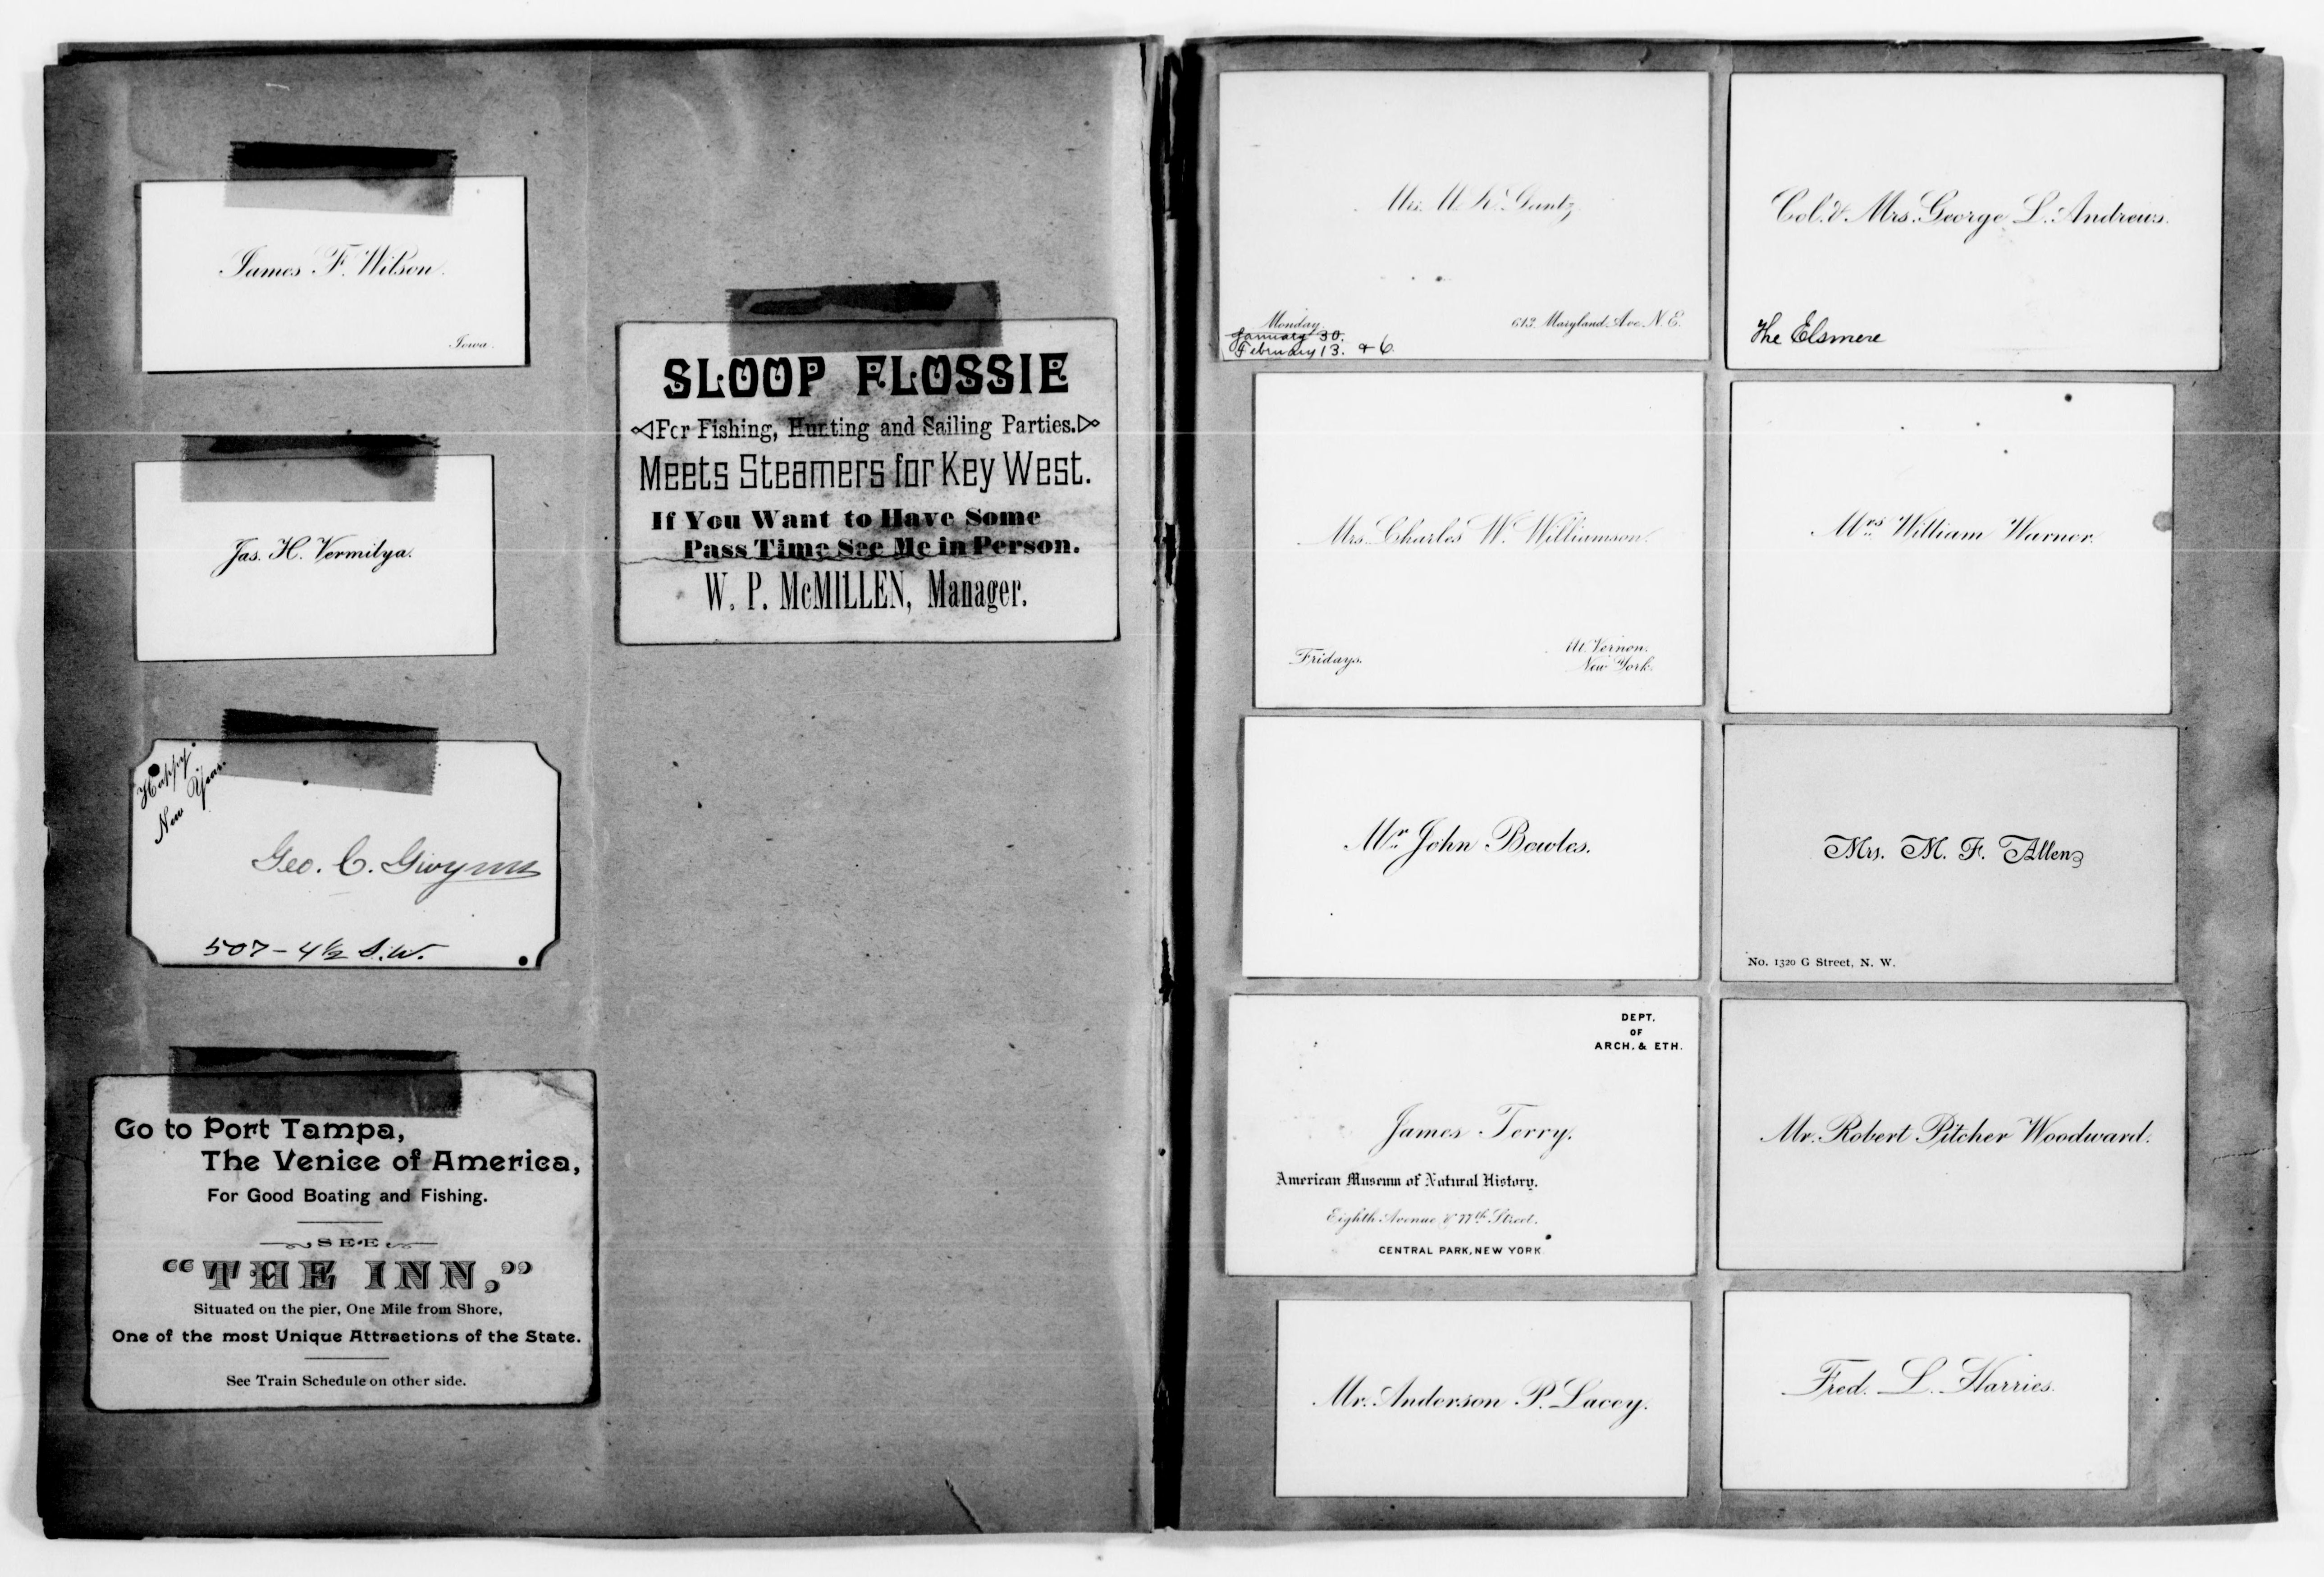 James F. Wilson.
Iowa.
Jas. H. Vermilya.
Happy
New Year.
Geo. C. Gwynn
507 - 4½ S.W.
Go to Port Tampa,
The Venice of America,
For Good Boating and Fishing.
SEE
"THE INN,"
Situated on the pier, One Mile from Shore,
One of the most Unique Attractions of the State.
See Train Schedule on other side.
SLOOP FLOSSIE
For Fishing, Hunting and Sailing Parties.
Meets Steamers for Key West.
If You Want to Have Some
Pass Time See Me in Person.
W. P. McMILLEN, Manager.
Gantz
Monday
January 30.
February 13. & 6
613 Maryland Ave. N.E.
Col. & Mrs. George L. Andrews.
The Elsmere
Mrs. Charles W. Williamson.
Fridays.
Mt. Vernon.
New York.
Mrs. William Warner.
Mr. John Bowles.
Mrs. M. F. Allen
No. 1320 G Street, N. W.
DEPT.
OF
ARCH. & ETH.
James Terry.
American Museum of Natural History.
Eighth Avenue & 77th Street.
CENTRAL PARK, NEW YORK.
Mr. Robert Pitcher Woodward.
Mr. Anderson P. Lacey.
Fred. L. Harries.